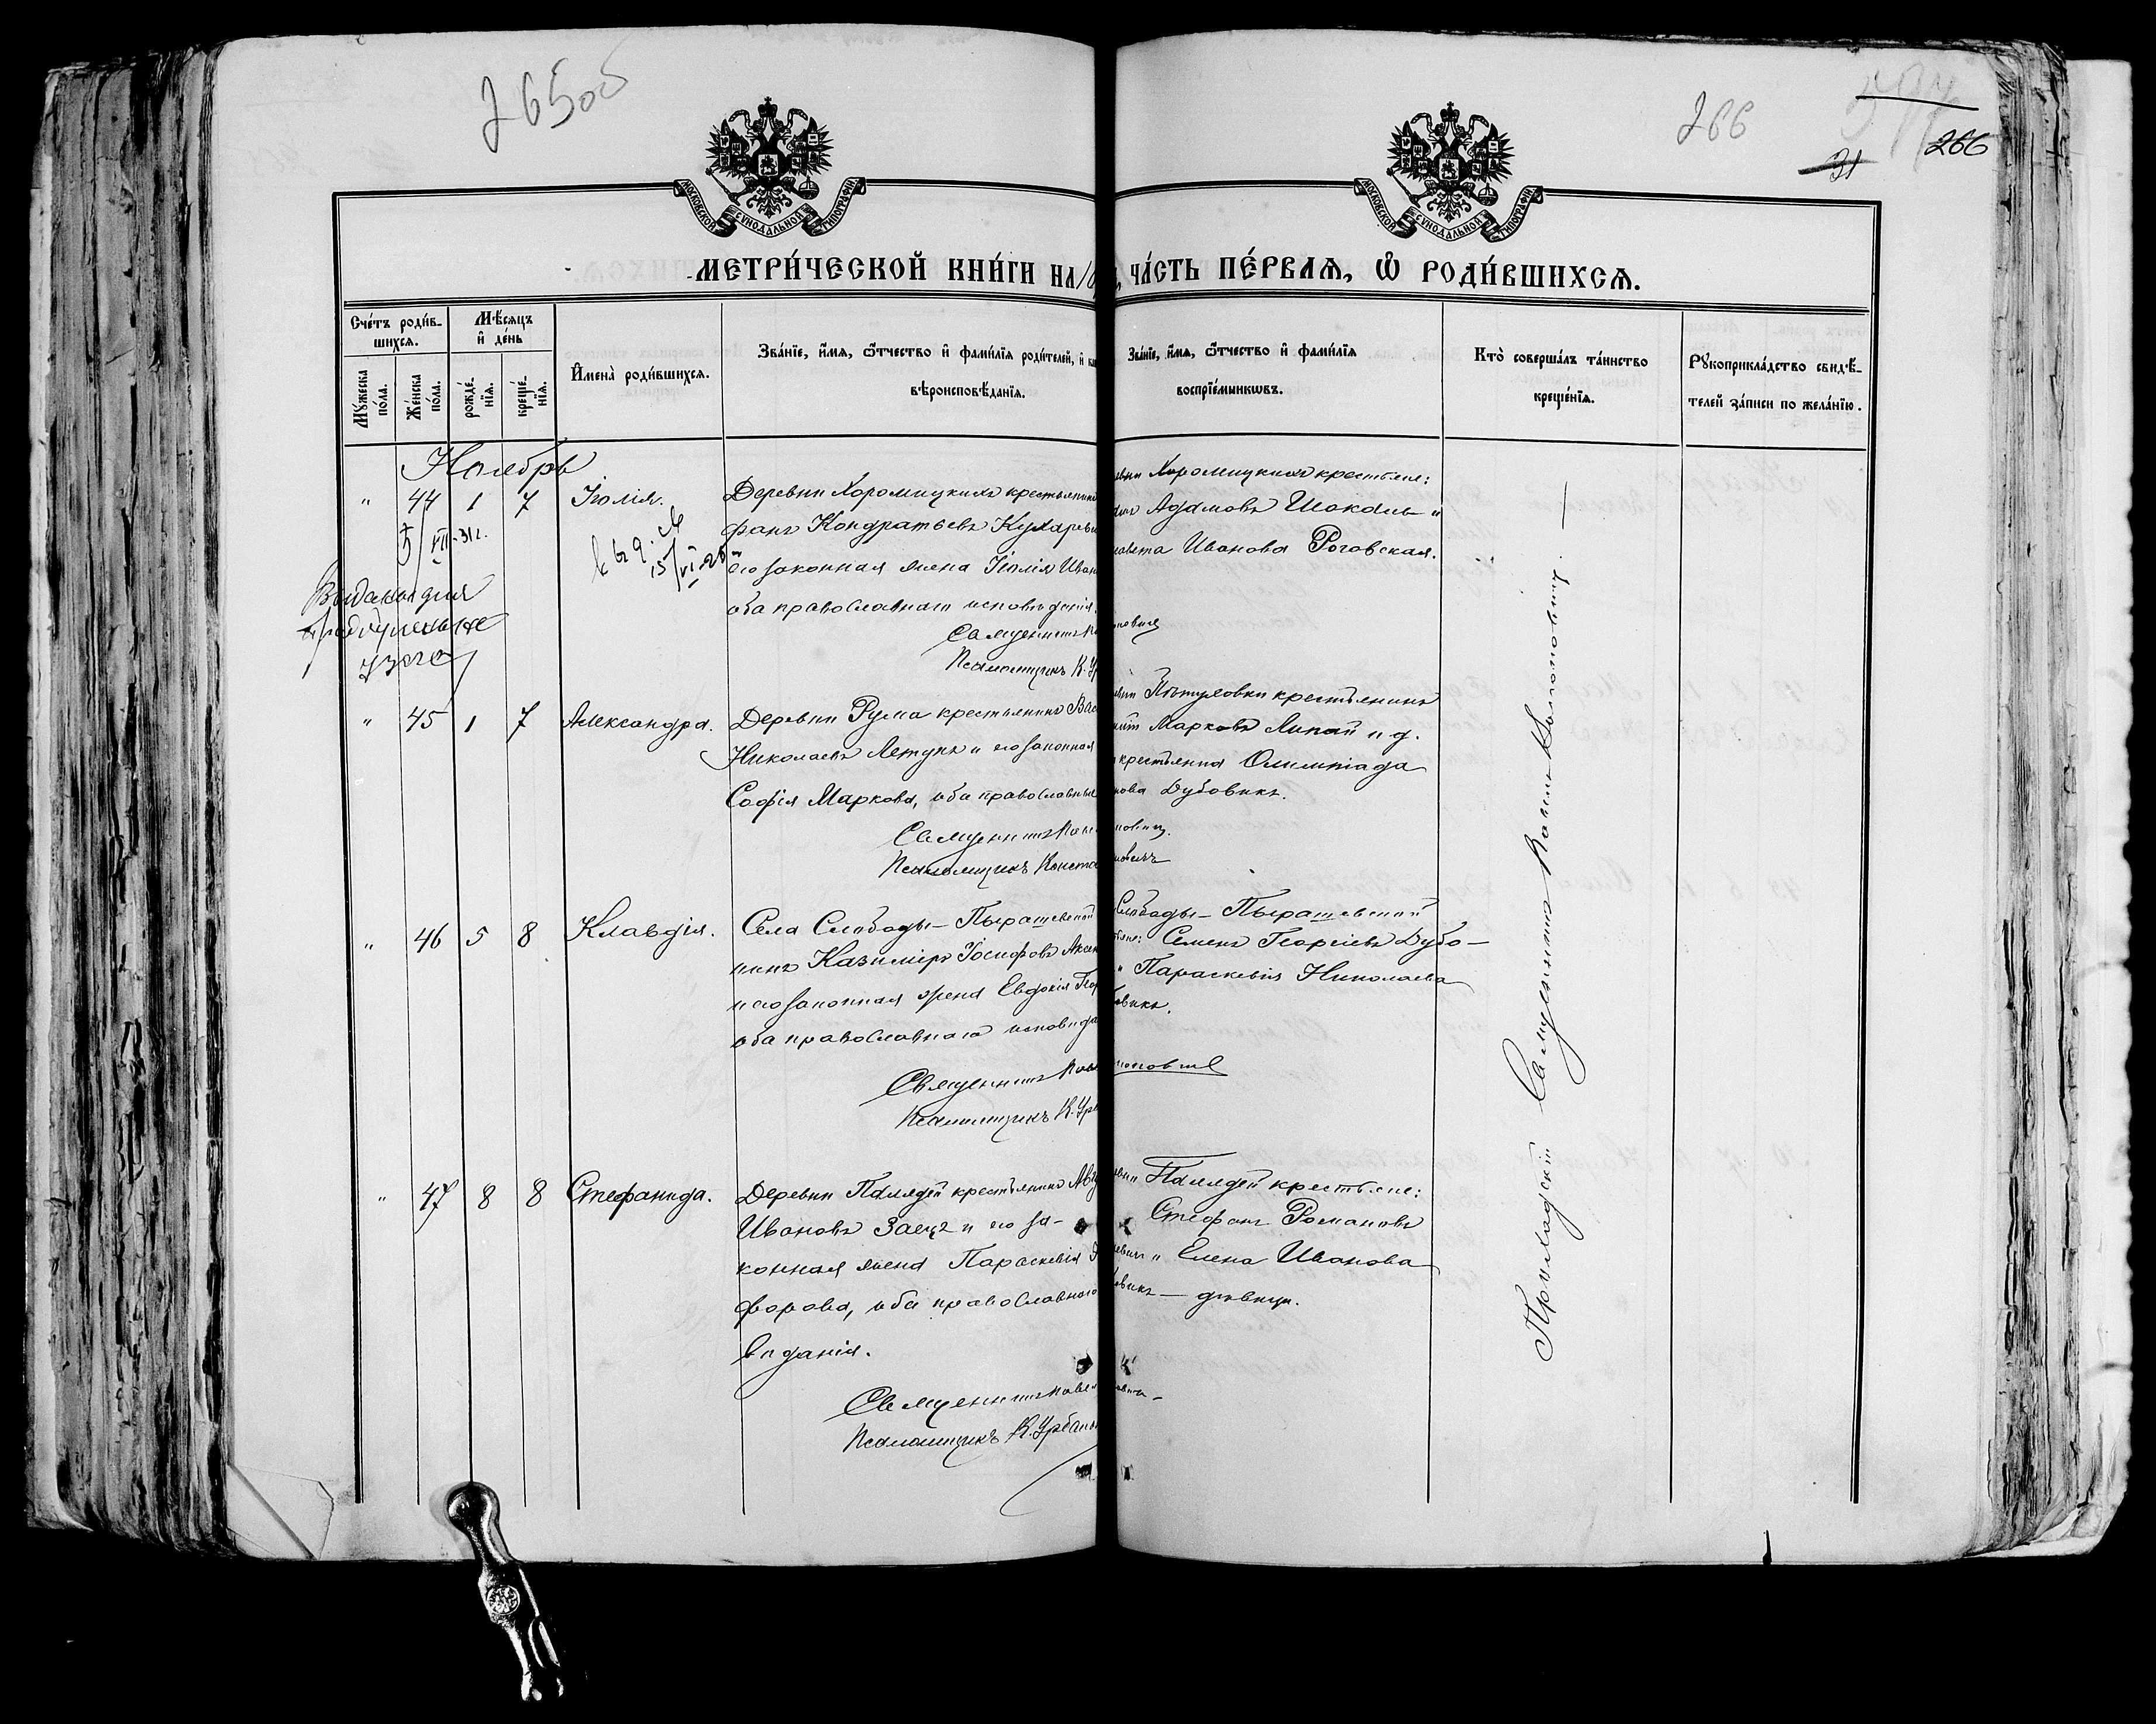 265об
266
266
31
МОСКОВСКОЙ СѴНОДАЛЬНОЙ ТИПОГРАФІИ.
МОСКОВСКОЙ СѴНОДАЛЬНОЙ ТИПОГРАФІИ.
МЕТРИ́ЧЕСКОЙ КНИ́ГИ НА
ЧА́СТЬ ПЕ́РВАѦ, Ѡ҆ РОДИ́ВШИХСѦ.
Сче́тъ роди́в-
шихсѧ.
Мѣ́сѧцъ
и҆ де́нь
Мꙋ́жеска по́ла.
Же́нска по́ла.
рожде́-
нїѧ.
креще́-
нїѧ.
И҆мена̀ роди́вшихсѧ.
Зва́нїе, и҆́мѧ, ѻ҆́тчество и҆ фами́лїѧ роди́телей, и҆
вѣроисповѣ́данїѧ.
Зва́нїе, и҆́мѧ, ѻ҆́тчество и҆ фами́лїѧ
воспрїе́мникѡвъ.
Кто̀ соверша́лъ та́инство
креще́нїѧ.
Рꙋкоприкла́дство свидѣ́-
телей за́писи по жела́нїю.
Ноябрь
" 44 1 7 Іюлія.
Деревни Хоромицкихъ крестьянинъ
фанъ Кондратьевъ Кухареви
его законная жена Іюлія Иван
оба православнаго исповѣданія.
Священникъ
Псаломщикъ К. Ур
Хоромицкихъ крестьяне:
Адамовъ Шокаль и
Иванова Роговская.
VII-31г.
15/VI-26
" 45 1 7 Александра.
Деревни Рума крестьянинъ Вас
Николаевъ Летунъ и его законная
Софія Маркова, оба православные
Священникъ
Псаломщикъ Конста
крестьянинъ
Марковъ Липай и д.
крестьянка Олимпіада
нова Дубовикъ.
" 46 5 8 Клавдія.
Села Слободы-Пырашевской
нинъ Казиміръ Іосифовъ Аксен
и его законная жена Евдокія Геор
оба православнаго исповѣда
Священникъ
Псаломщикъ К. Урб
Слободы-Пырашевской
Семенъ Георгіевъ Дубо-
" Параскевія Николаева
овикъ.
" 47 8 8 Стефанида.
Деревни Палядей крестьянинъ Авг
Ивановъ Заецъ и его за-
конная жена Параскевія
форова, оба православнаго
вѣданія.
Священникъ Павел
Псаломщикъ К. Урбан
Палядей крестьяне:
Стефанъ Романовъ
евичъ и Елена Иванова
овикъ — дѣвица.
Приходскій Священникъ Павелъ Кононовичъ. —